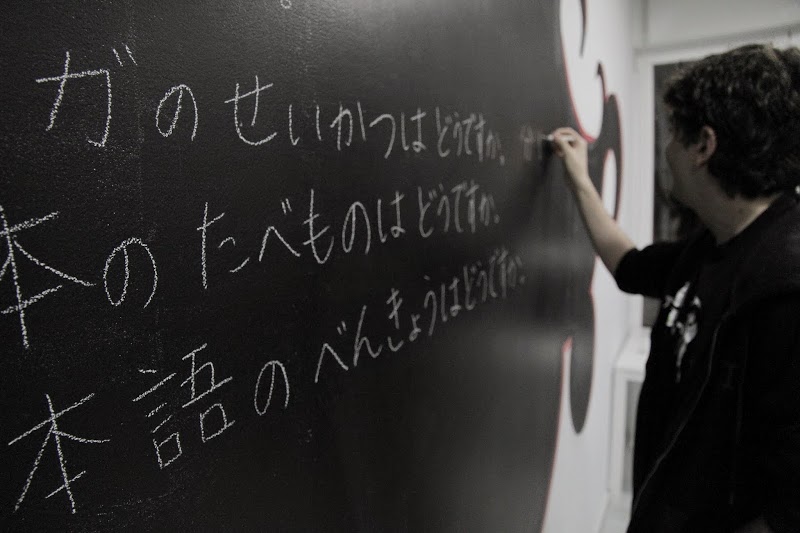 ガのせいかつはどうですか。
本のたべものはどうですか。
本語のべんきょうはどうですか。